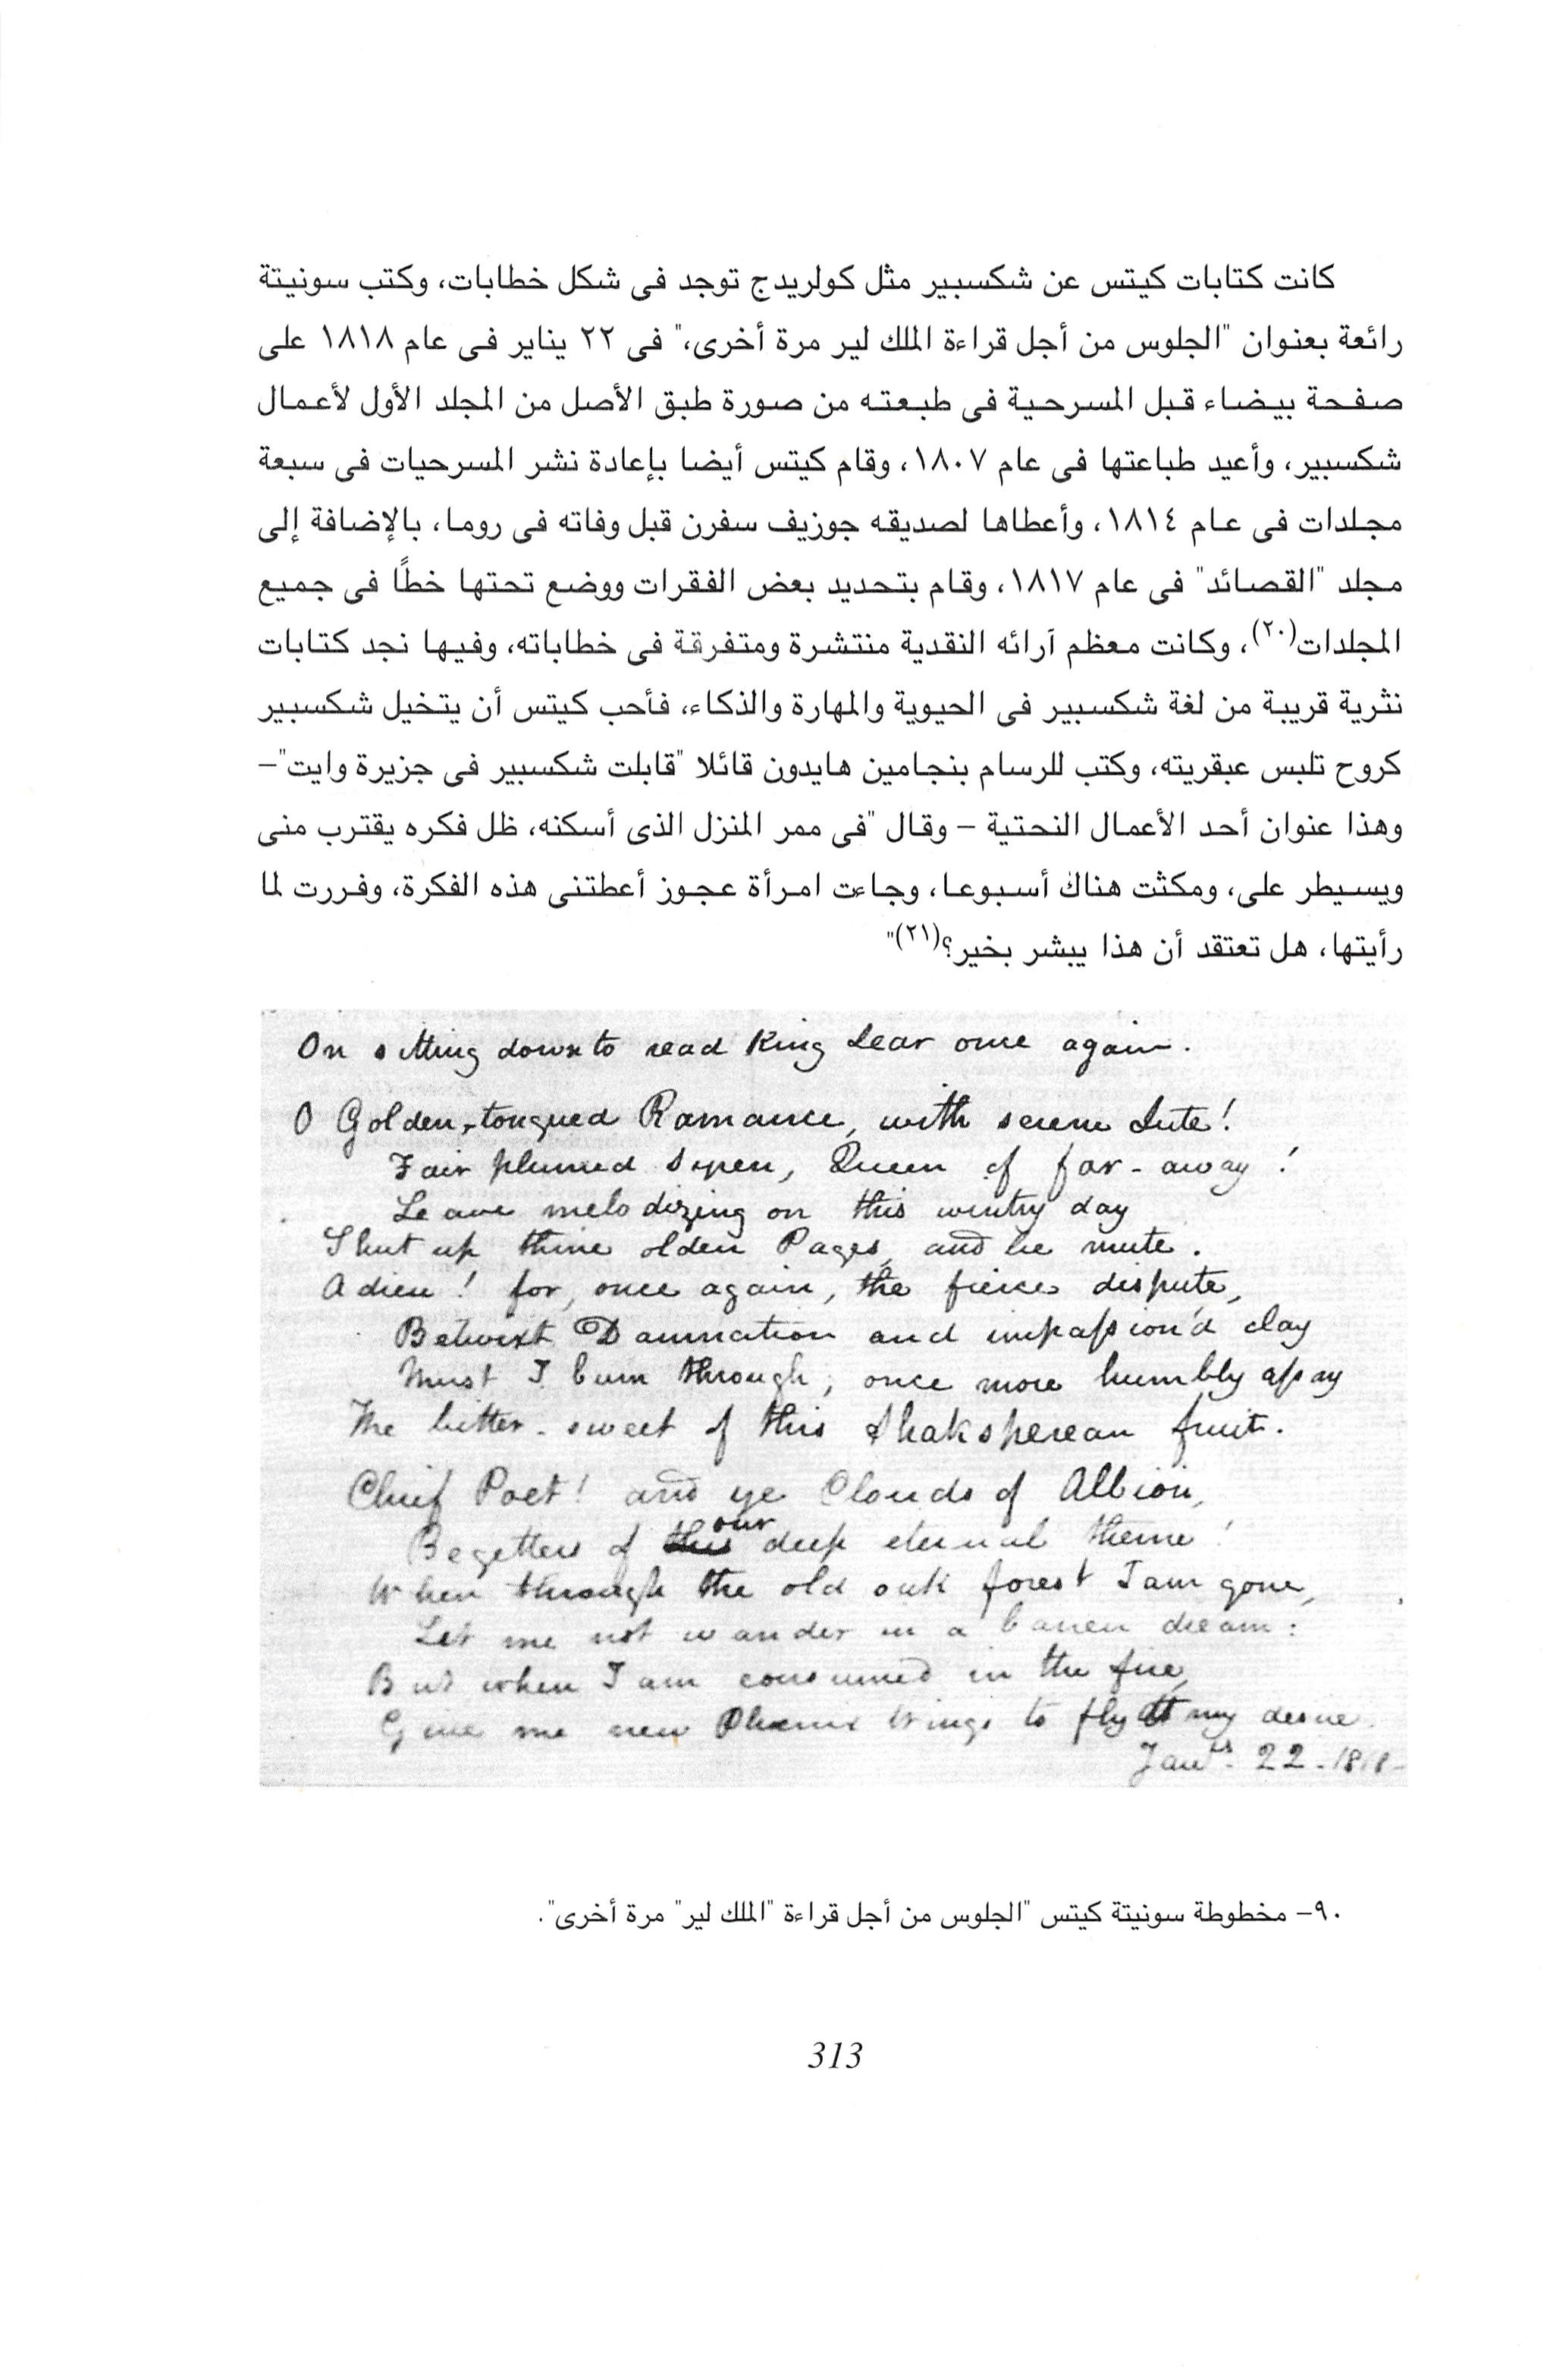 كانت كتابات كيتس عن شكسبير مثل كولريدج توجد فى شكل خطابات، وكتب سونيتة
رائعة بعنوان "الجلوس من أجل قراءة الملك لير مرة أخرى،" فى ٢٢ يناير فى عام ١٨١٨ على
صفحة بيضاء قبل المسرحية فى طبعته من صورة طبق الأصل من المجلد الأول لأعمال
شكسبير، وأعيد طباعتها فى عام ١٨٠٧، وقام كيتس أيضا بإعادة نشر المسرحيات فى سبعة
مجلدات فى عام ١٨١٤، وأعطاها لصديقه جوزيف سفرن قبل وفاته فى روما، بالإضافة إلى
مجلد "القصائد" فى عام ١٨١٧، وقام بتحديد بعض الفقرات ووضع تحتها خطًا فى جميع
المجلدات(٢٠)، وكانت معظم آرائه النقدية منتشرة ومتفرقة فى خطاباته، وفيها نجد كتابات
نثرية قريبة من لغة شكسبير فى الحيوية والمهارة والذكاء، فأحب كيتس أن يتخيل شكسبير
كروح تلبس عبقريته، وكتب للرسام بنجامين هايدون قائلا "قابلت شكسبير فى جزيرة وايت"–
وهذا عنوان أحد الأعمال النحتية – وقال "فى ممر المنزل الذى أسكنه، ظل فكره يقترب منى
ويسيطر على، ومكثت هناك أسبوعا، وجاءت امرأة عجوز أعطتنى هذه الفكرة، وفررت لما
رأيتها، هل تعتقد أن هذا يبشر بخير؟(٢١)"
On sitting down to read King Lear once again.
O Golden-tongued Romance, with serene Lute!
Fair plumed Syren, Queen of far-away!
Leave melodizing on this wintry day
Shut up thine olden Pages, and be mute.
Adieu! for, once again, the fierce dispute,
Betwixt Damnation and impassion'd clay
Must I burn through; once more humbly assay
The bitter-sweet of this Shakesperean fruit.
Chief Poet! and ye Clouds of Albion,
Begetters of this our deep eternal theme!
When through the old oak forest I am gone,
Let me not wander in a barren dream:
But when I am consumed in the fire,
Give me new Phœnix Wings to fly at my desire.
Jany. 22-1818-
٩٠– مخطوطة سونيتة كيتس "الجلوس من أجل قراءة "الملك لير" مرة أخرى".
313